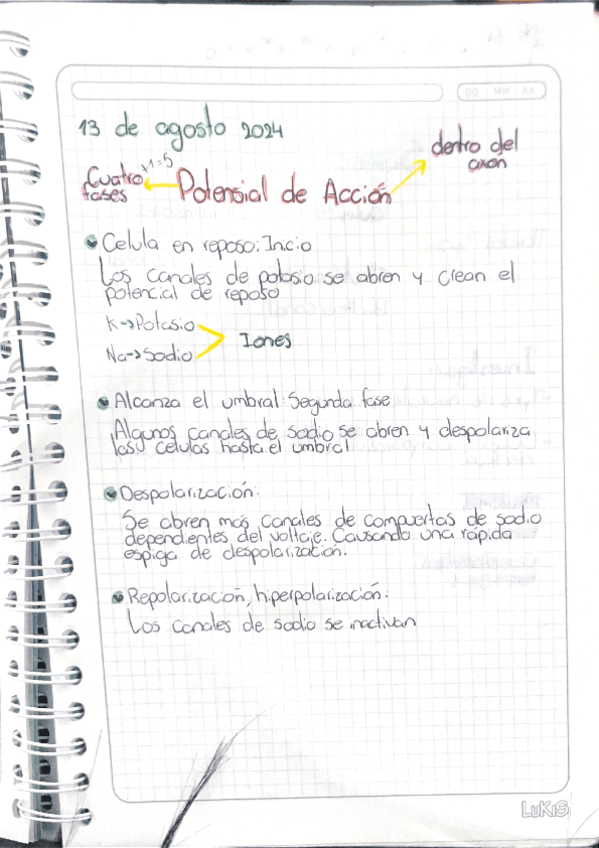 13 de agosto 2024
dentro del
axon
Cuatro +1=5
fases
Potensial de Acción
Celula en reposo: Incio
Los canales de potasio se abren y crean el
potencial de reposo
K->Potasio
Na->Sodio
Iones
Alcanza el umbral: Segunda fase
Algunos canales de sodio se abren y despolariza
las celulas hasta el umbral
Despolarización:
Se abren más canales de compuertas de sodio
dependientes del voltaje. Causando una rápida
espiga de despolarización.
Repolarización, hiperpolarización:
Los canales de sodio se inactivan
LUKIS